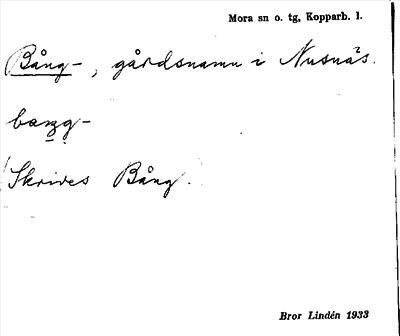 Mora sn o. tg, Kopparb. l.
Bång-, gårdsnamn i Nusnäs.
Skrives Bång.
Bror Lindén 1933